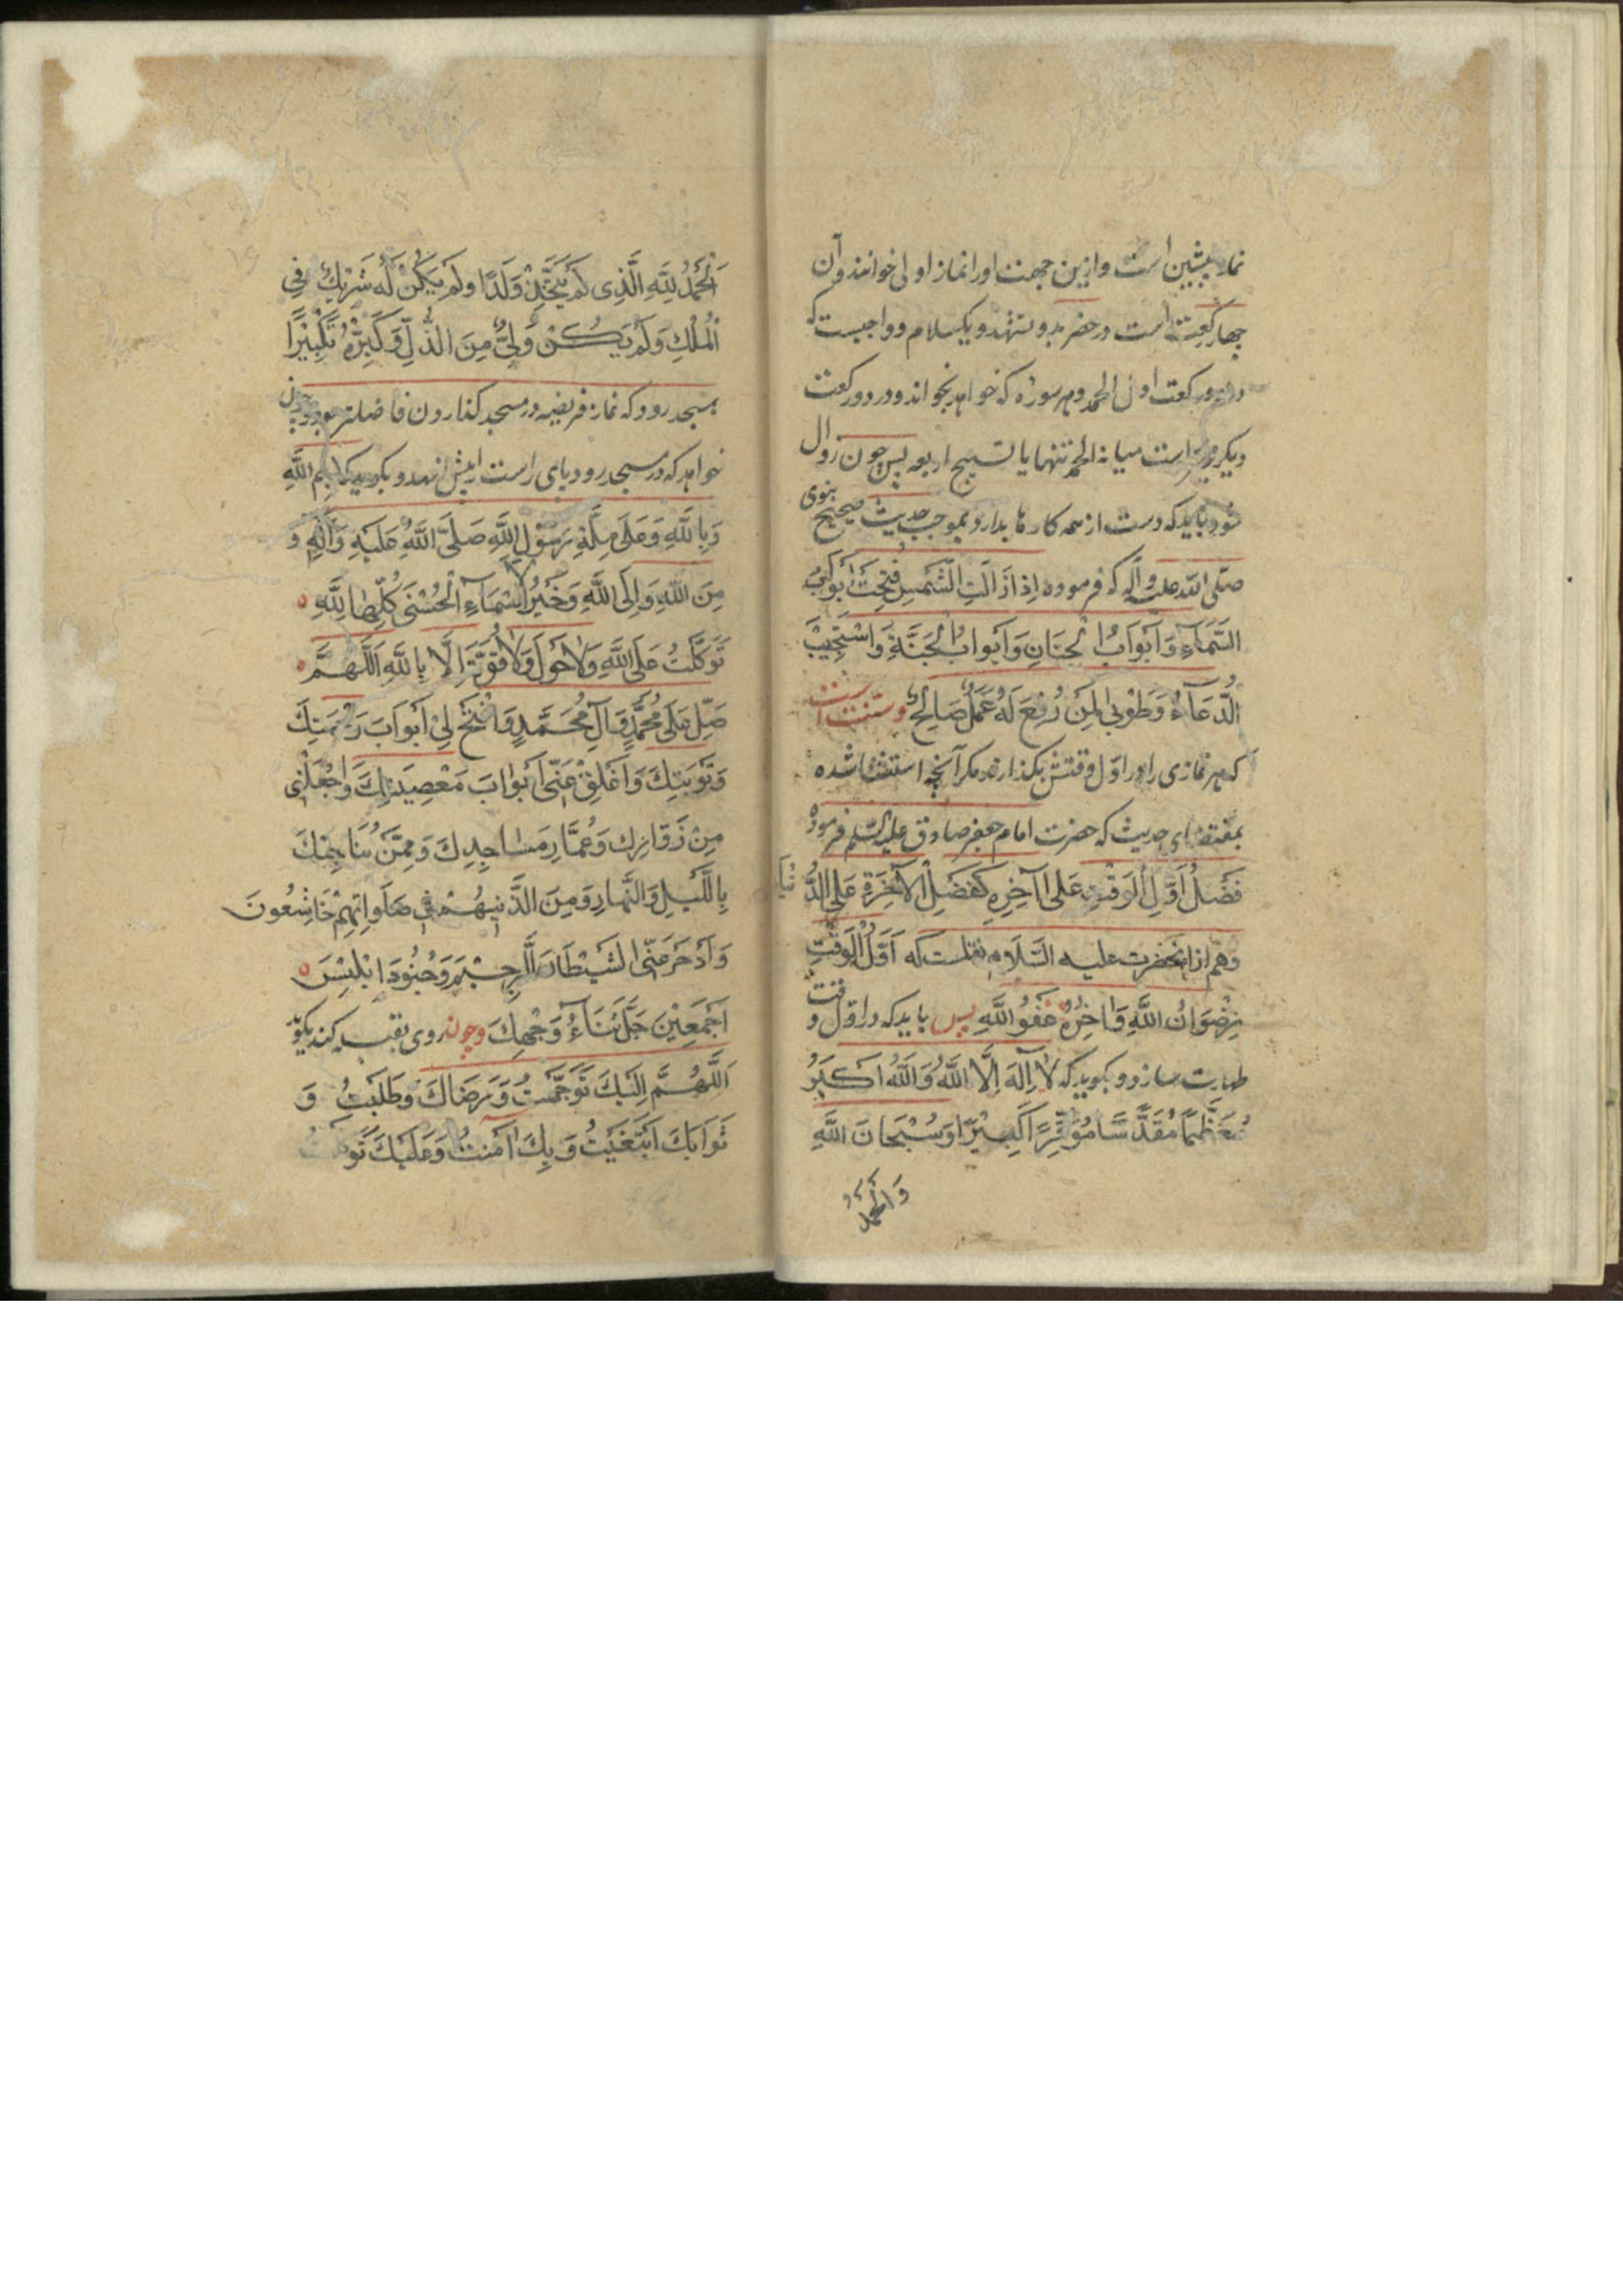 نماز پیشین است و ازین جهت او را نماز اولی خوانند و آن
چهار رکعت است در حضر بدو تشهد و یکسلام و واجبست که
در دو رکعت اول الحمد و هر سوره که خواهد بخواند و در دو رکعت
دیگر مخیر است میانه الحمد تنها یا تسبیح اربعه پس چون زوال
شود باید که دست از همه کارها بدارد و بموجب حدیث صحیح نبوی
صلی الله علیه و آله که فرموده اِذا زَالَتِ الشَّمْسُ فُتِحَتْ اَبْوَابُ
السَّمَآءِ وَ اَبْوَابُ الْجِنَانِ وَ اَبْوابُ الْجَنَّةِ وَاسْتُجِیْبَ
الدُّعَآءُ وَ طُوْبی لِمَنْ رُفِعَ لَهُ عَمَلٌ صَالِحٌ وسنّت است
که هر نمازی را در اوّل وقتش بگذارند مکر آنچه استثنا شده
بمقتضای حدیث که حضرت امام جعفر صادق علیه السلم فرموده
فَضْلُ اَوَّلِ الْوَقْتِ عَلی آخِرِهِ کَفَضْلِ الْآخِرَةِ عَلی الدُّنْیَا
وَهَم از انحضرت علیه السَّلَام نقلست که اَوَّلُ الْوَقْتِ
رِضْوَانُ اللَّهِ وَ اخِرُهُ عَفْوُ اللَّهِ پس باید که در اوّل وقت
طهارت سازد و بکوید که لا اِلٰهَ اِلَّا اللَّهُ وَ اللَّهُ اکْبَرُ
مُعَظَّمًا مُقَدَّسًا مُوَقَّرًا کَبِیْرًا وَ سُبْحَانَ اللَّهِ
وَالْحَمْدُ
اَلْحَمْدُ لِلَّهِ الَّذِی لَمْ یَتَّخِذْ وَلَدًا وَ لَمْ یَکُنْ لَهُ شَرِیْکٌ فِی
الْمُلْکِ وَ لَمْ یَکُنْ لَهُ وَلِیٌّ مِنَ الذُّلِّ وَ کَبِّرْهُ تَکْبِیْرًا
بمسجد رود که نماز فریضه در مسجد کذاردن فاضلتر بود و چون
خواهد که در مسجد رود پای راست پیش نهد و بکوید که بِسْمِ اللَّهِ
وَ بِاللَّهِ وَ عَلی مِلَّةِ رَسُوْلِ اللَّهِ صَلَّی اللَّهُ عَلَیْهِ وَ آلِهِ وَ
مِنَ اللَّهِ وَ اِلَی اللَّهِ وَ خَیْرُ الْاَسْمَاءِ الْحُسْنی کُلِّهَا لِلَّهِ
تَوَکَّلْتُ عَلَی اللَّهِ وَ لَا حَوْلَ وَ لَا قُوَّةَ اِلَّا بِاللَّهِ اَللَّهُمَّ
صَلِّ عَلی مُحَمَّدٍ وَ آلِ مُحَمَّدٍ وَ افْتَحْ لِیْ اَبْوَابَ رَحْمَتِکَ
وَ تَوْبَتِکَ وَ اَغْلِقْ عَنِّی اَبْوَابَ مَعْصِیَتِکَ وَ اجْعَلْنِی
مِنْ زُوَّارِکَ وَ عُمَّارِ مَسَاجِدِکَ وَ مِمَّنْ یُنَاجِیْکَ
بِاللَّیْلِ وَ النَّهَارِ وَ مِنَ الَّذِیْنَ هُمْ فِی صَلَوَاتِهِمْ خَاشِعُونَ
وَ ادْحَرْ عَنِّی الشَیْطَانَ الرَّجِیْمَ وَ جُنُوْدَ اِبْلِیْسَ
اَجْمَعِیْنَ جَلَّ ثَنَاءُ وَجْهِکَ وچون روی بقبله کند بکوید
اَللَّهُمَّ اِلَیْکَ تَوَجَّهْتُ وَ مَرْضَاتَکَ وَ طَلَبْتُ وَ
ثَوَابَکَ ابْتَغَیْتُ وَ بِکَ اٰمَنْتُ وَ عَلَیْکَ تَوَکَّلْتُ